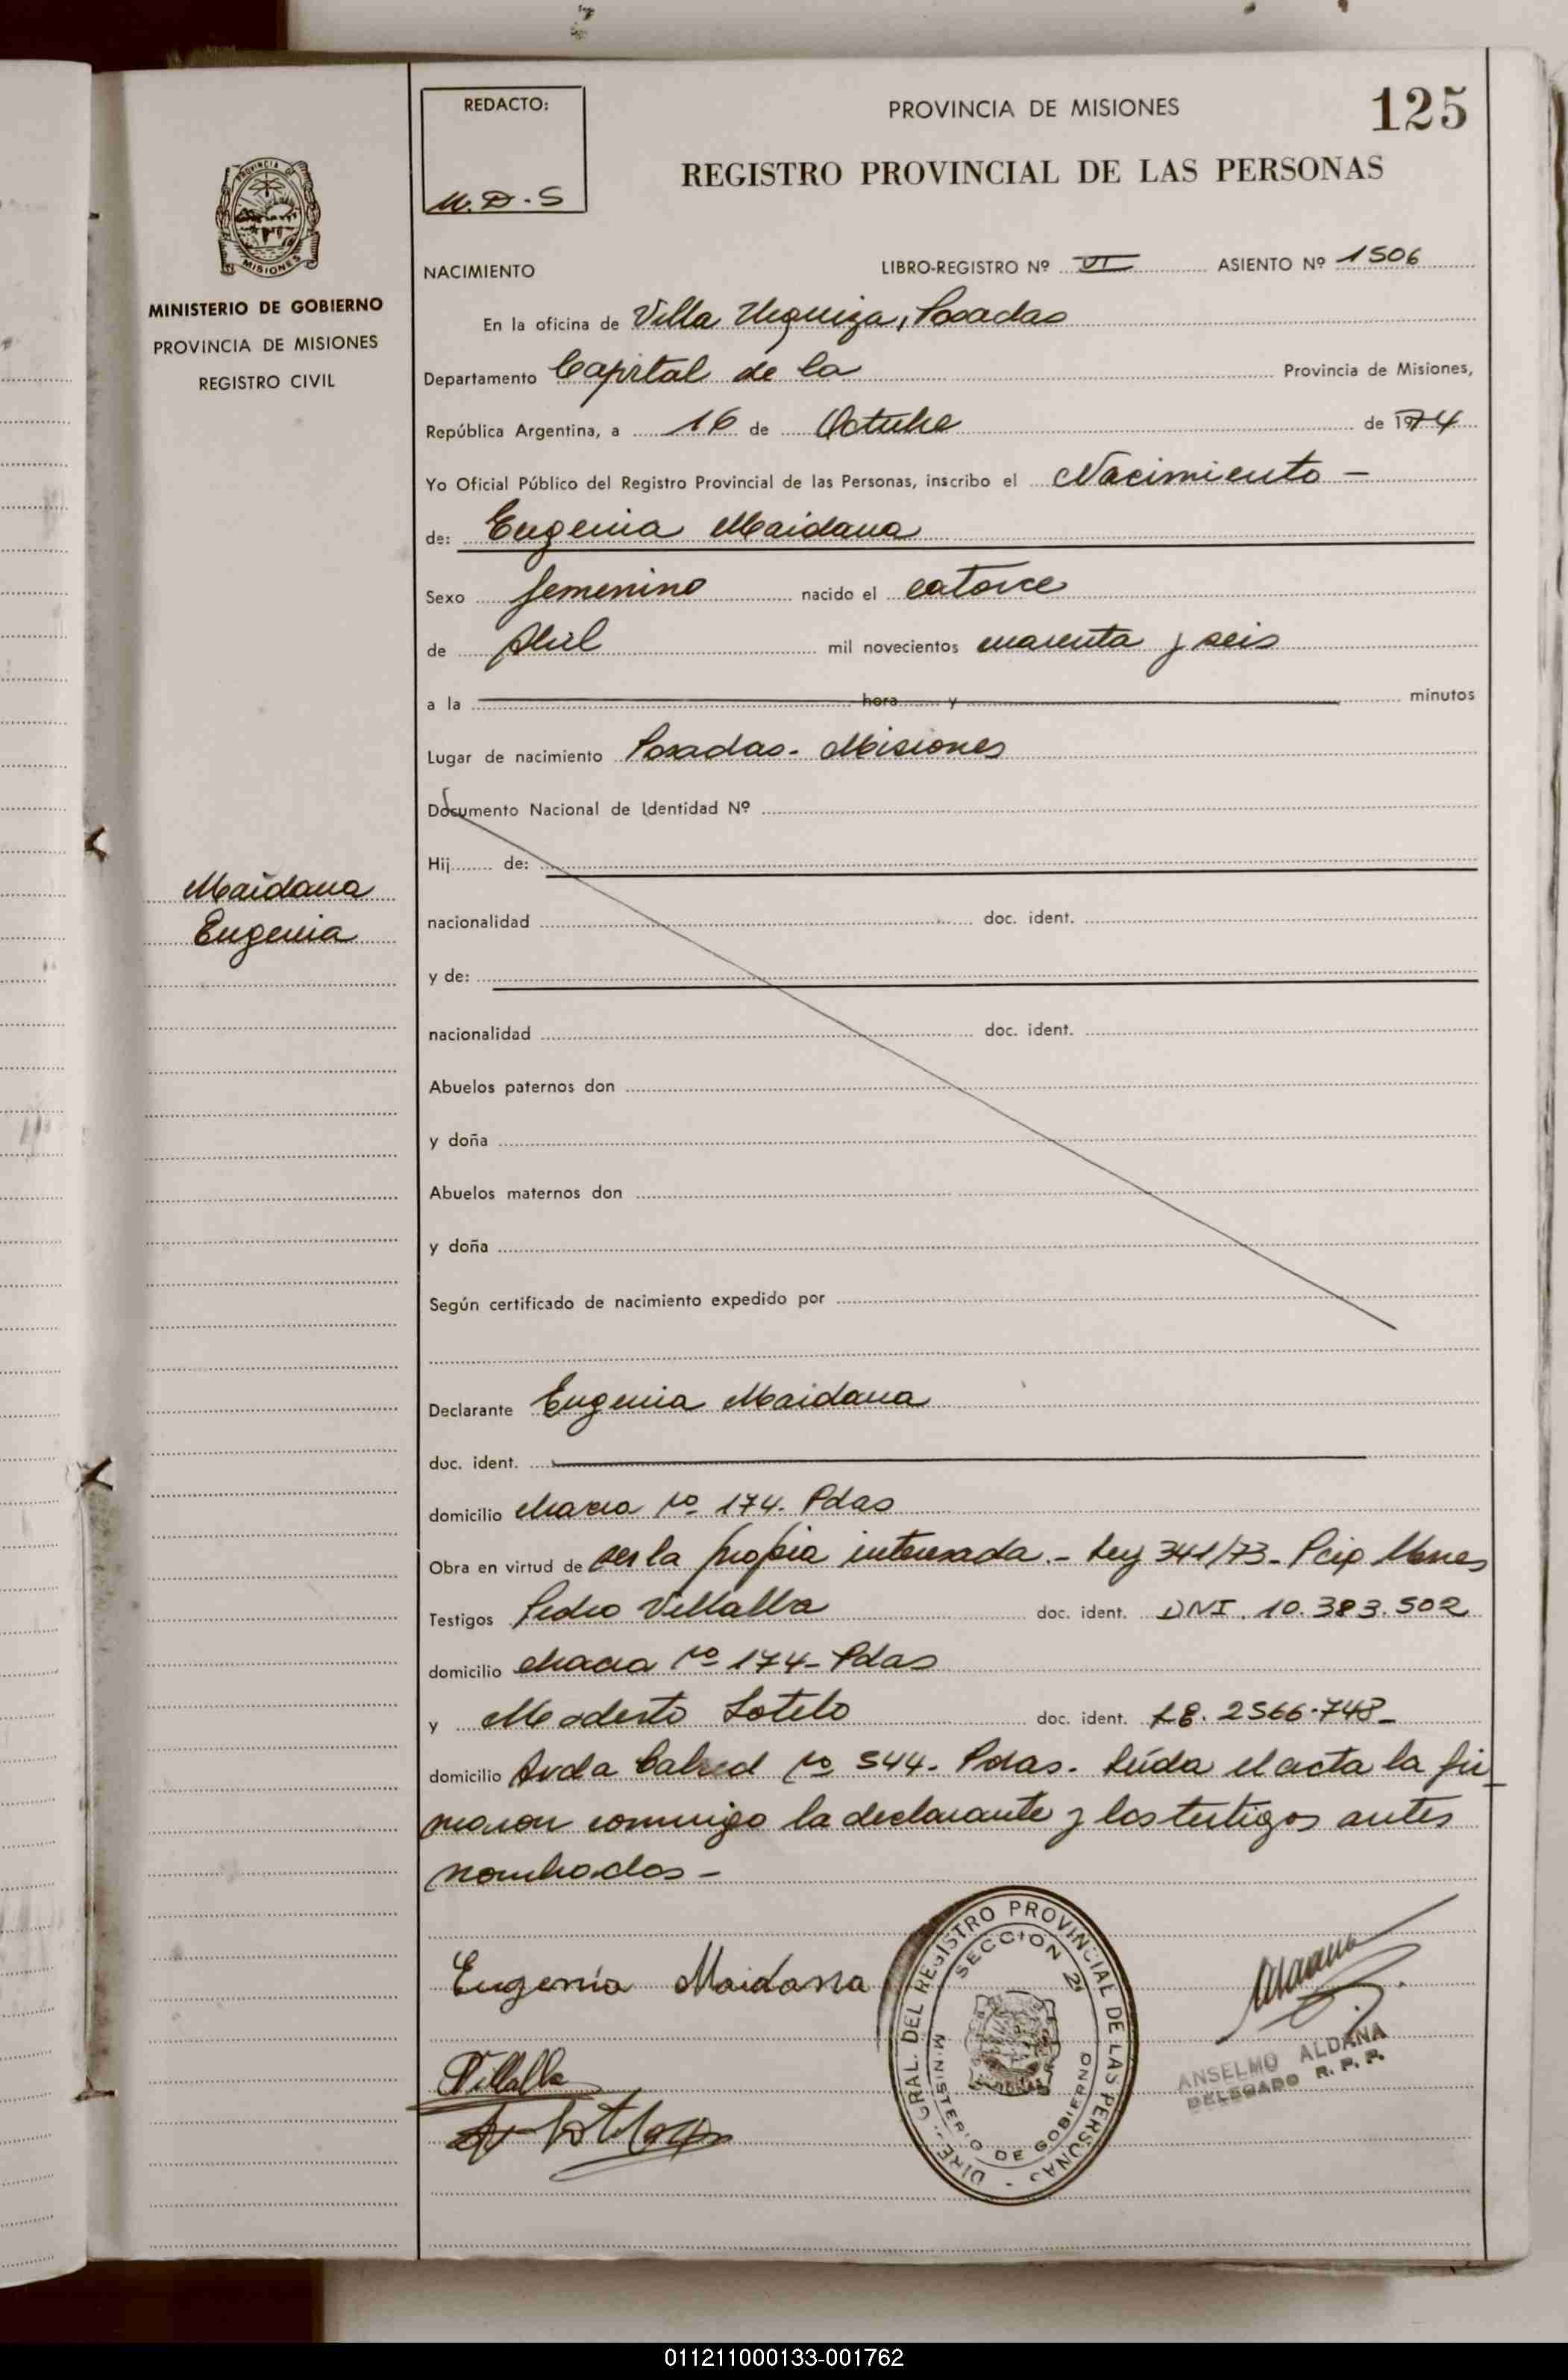 REDACTO:
M.D.S
PROVINCIA DE MISIONES
125
REGISTRO PROVINCIAL DE LAS PERSONAS
PROVINCIA D
MISIONES
MINISTERIO DE GOBIERNO
PROVINCIA DE MISIONES
REGISTRO CIVIL
NACIMIENTO LIBRO-REGISTRO Nº VI ASIENTO Nº 1506
En la oficina de Villa Urquiza, Posadas
Departamento Capital de la Provincia de Misiones,
República Argentina, a 16 de Octubre de 1974
Yo Oficial Público del Registro Provincial de las Personas, inscribo el Nacimiento -
de: Eugenia Maidana
Sexo femenino nacido el catorce
de Abril mil novecientos cuarenta y seis
a la hora y minutos
Lugar de nacimiento Posadas - Misiones
Documento Nacional de Identidad Nº
Hij de:
Maidana
Eugenia
nacionalidad doc. ident.
y de:
nacionalidad doc. ident.
Abuelos paternos don
y doña
Abuelos maternos don
y doña
Según certificado de nacimiento expedido por
Declarante Eugenia Maidana
doc. ident.
domicilio chacra Nº 174. Pdas
Obra en virtud de ser la propia interesada. - Ley 341/73 - Pcia Mnes
Testigos Pedro Villalba doc. ident. DNI. 10.383.502
domicilio chacra Nº 174 - Pdas
y Modesto Sotelo doc. ident. 2566.743 -
domicilio Avda Nº 544. Pdas. Leída el acta la fir
maron conmigo la declarante y los testigos antes
nombrados -
Eugenia Maidana
Villalba
DIRE. GRAL. DEL REGISTRO PROVINCIAL DE LAS PERSONAS -
SECCION 2ª
MINISTERIO DE GOBIERNO
ANSELMO ALDANA
DELEGADO R. P. P.
011211000133-001762